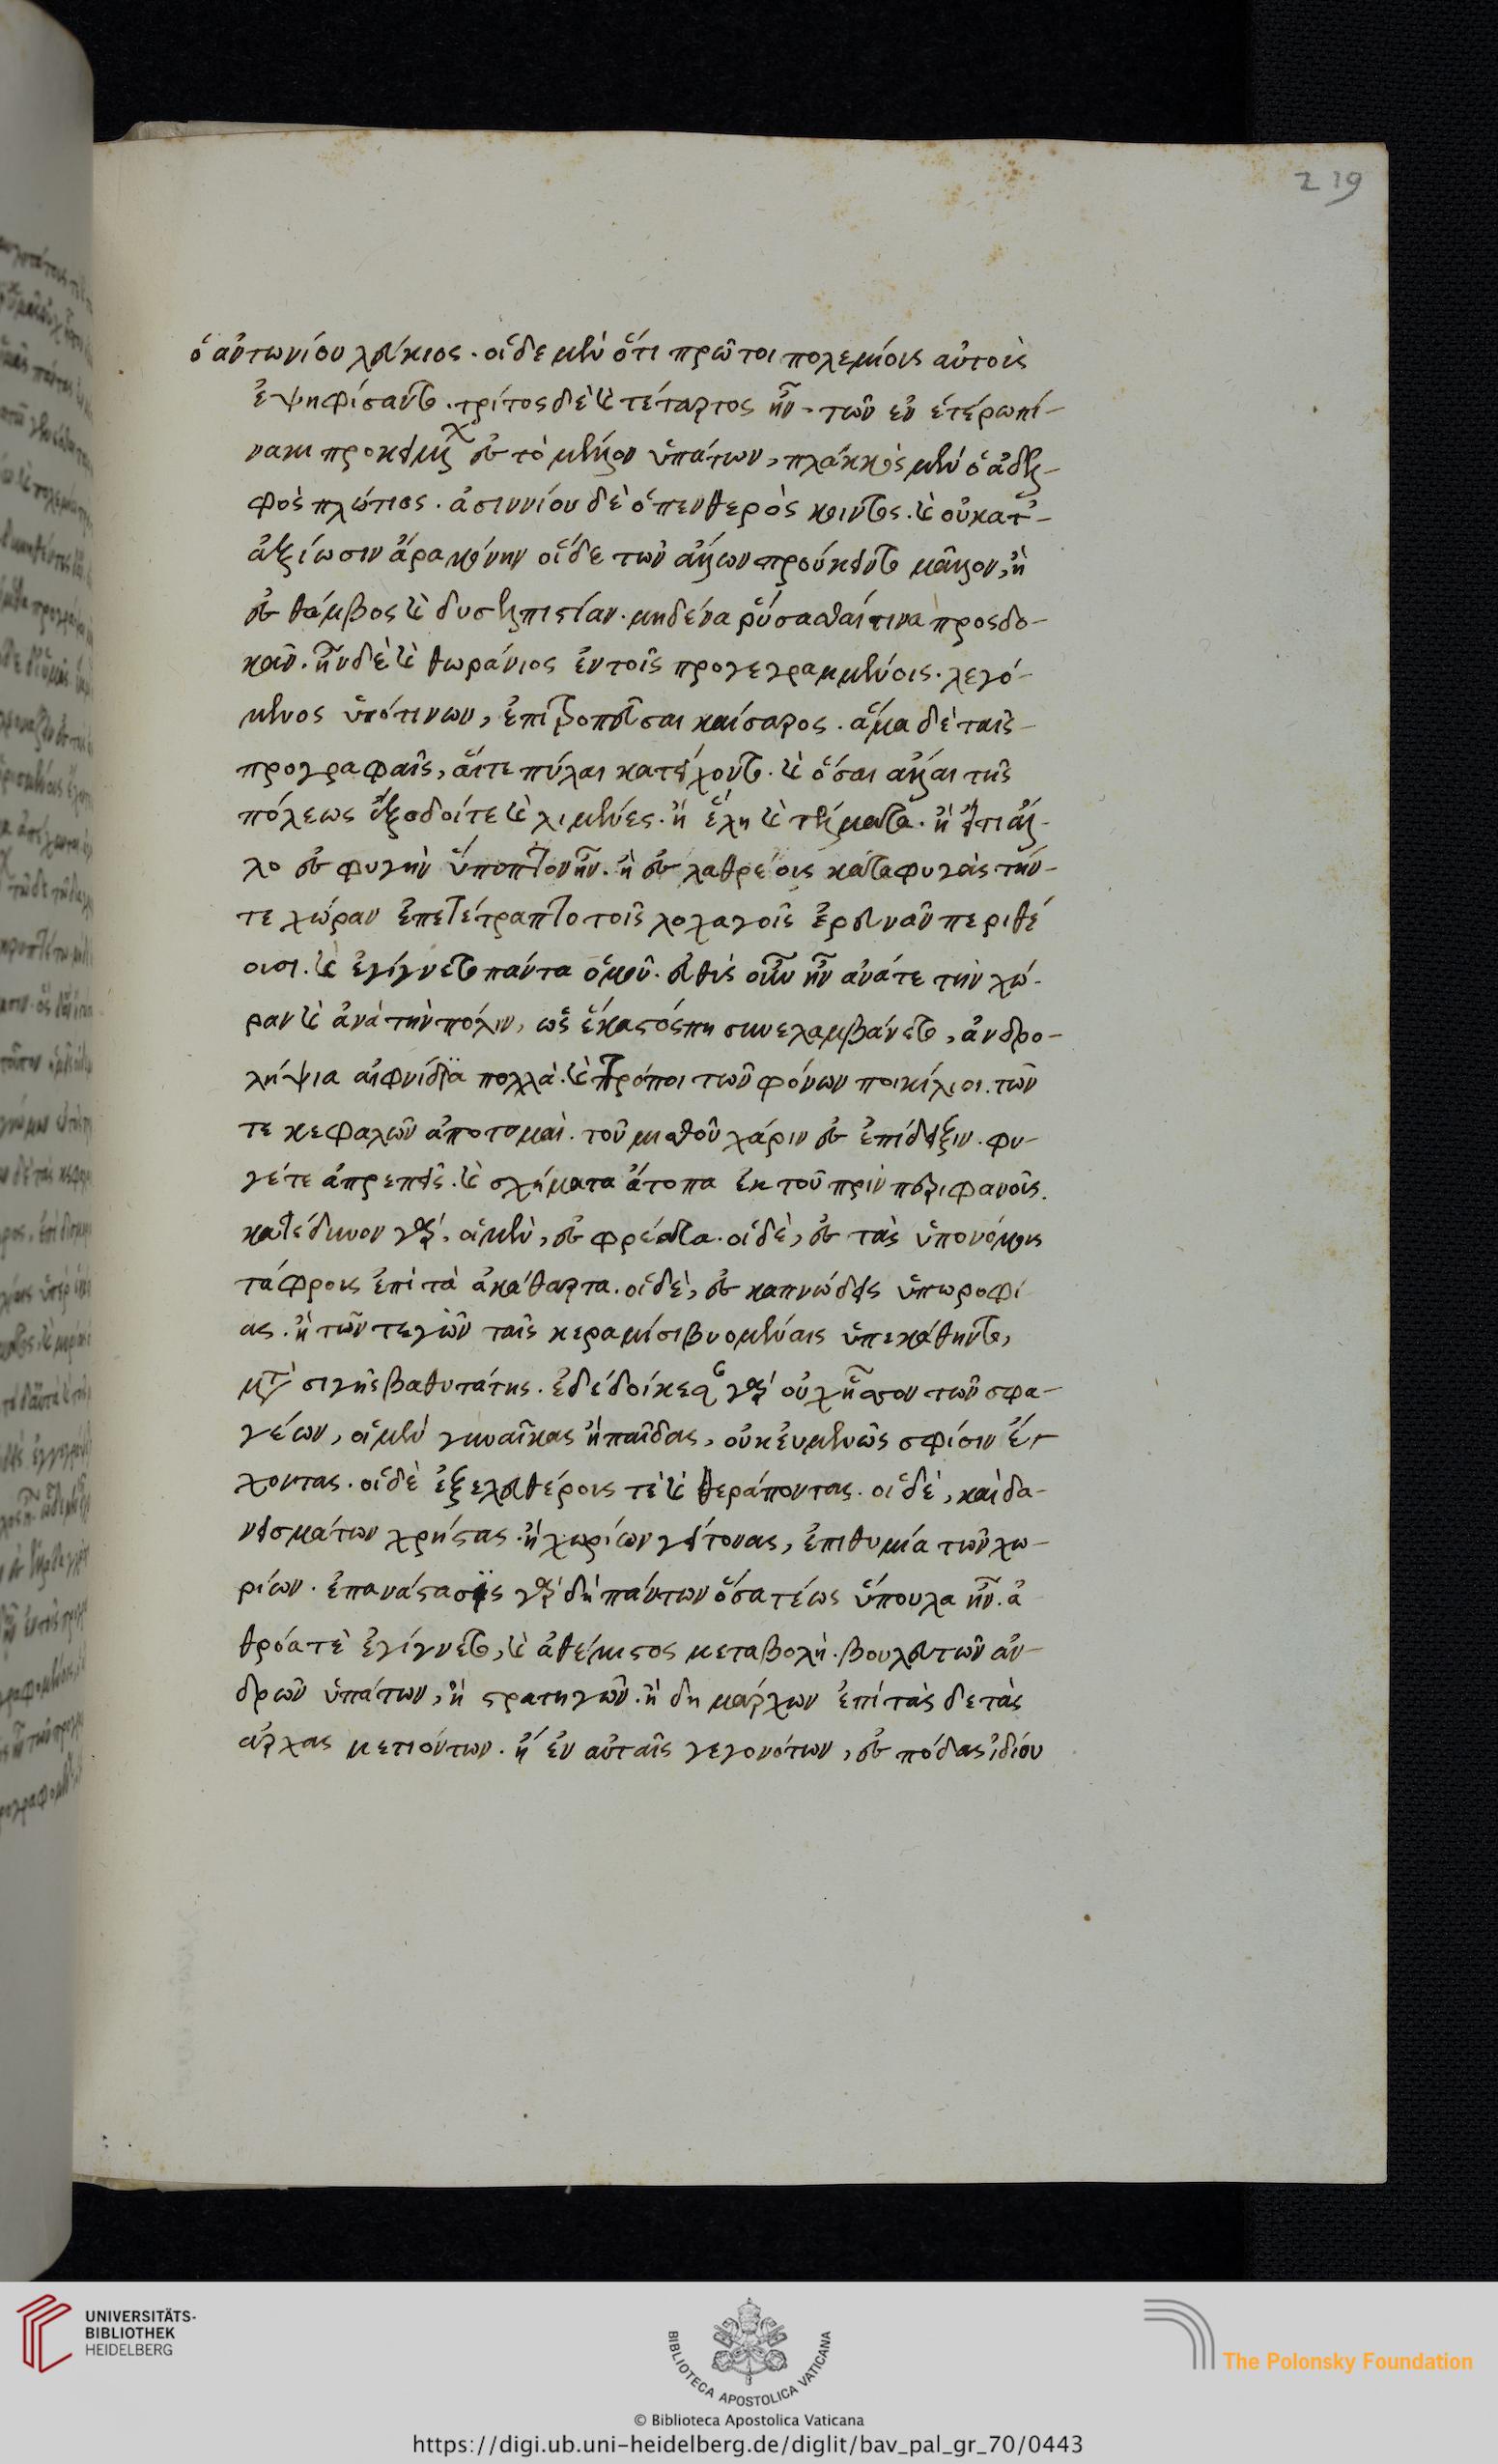 219
ὁ ἀντωνίου λεύκιος. οἵδε μὲν ὅτι πρῶτοι πολεμίους αὐτοὺς
ἐψηφίσαντο. τρίτος δὲ καὶ τέταρτος ἦν. τῶν ἐν ἑτέρω πί-
νακι προκειμ εἰς τὸ μέλλον ὑπάτων, πλάκκος μὲν ὁ ἀδελ-
φὸς πλώτιος. ἀσιννίου δὲ ὁ πενθερὸς κοιντος. καὶ οὐ κατ'-
ἀξίωσιν ἄρα μόνην οἵδε τῶν ἄλλων προύκειντο μᾶλλον, ἢ
εἰς θάμβος καὶ δυσελπιστίαν. μηδένα ῥύσασθαί τινα προσδο-
κᾶν. ἦν δὲ καὶ θωράνιος ἐν τοῖς προγεγραμμένοις. λεγό-
μενος ὑπό τινων, ἐπιτροπεῦσαι καίσαρος. ἅμα δὲ ταῖς-
προγραφαῖς, αἵ τε πύλαι κατείχοντο. καὶ ὅσαι ἄλλαι τῆς
πόλεως ἔξοδοί τε καὶ λιμένες. ἢ ἕλη καὶ τέλματα. ἢ εἴ τι ἄλ-
λο εἰς φυγὴν ὕποπτον ἦν. ἢ εἰς λαθραίους καταφυγὰς τήν-
τε χώραν ἐπετέτραπτο τοῖς λοχαγοῖς ἐρευνᾶν περιθέ
ουσι. καὶ ἐγίγνετο πάντα ὁμοῦ. εὐθὺς οὖν ἦν ἀνά τε τὴν χώ-
ραν καὶ ἀνὰ τὴν πόλιν, ὡς ἕκαστός πη συνελαμβάνετο, ἀνδρο-
λήψια αἰφνίδια πολλὰ. καὶ τρόποι τῶν φόνων ποικίλοι. τῶν
τε κεφαλῶν ἀποτομαὶ. τοῦ μισθοῦ χάριν εἰς ἐπίδειξιν. φυ-
γέ τε ἀπρεπεῖς. καὶ σχήματα ἄτοπα ἐκ τοῦ πρὶν περιφανοῦς.
κατέδυνον γὰρ, οἱ μὲν, εἰς φρέατα. οἱ δὲ, εἰς τὰς ὑπονόμους
τάφρους ἐπὶ τὰ ἀκάθαρτα. οἱ δὲ, εἰς καπνώδεις ὑπωροφί
ας. ἢ τῶν τεγῶν ταῖς κεραμίσι βυομέναις ὑπεκάθηντο,
μετὰ σιγῆς βαθυτάτης. ἐδεδοίκεσαν γὰρ οὐχ ἧσσον τῶν σφα-
γέων, οἱ μὲν γυναῖκας ἢ παῖδας, οὐκ εὐμενῶς σφίσιν ἔ-
χοντας. οἱ δὲ ἐξελευθέρους τὲ καὶ θεράποντας. οἱ δὲ, καὶ δα-
νεισμάτων χρήστας. ἢ χωρίων γείτονας, ἐπιθυμία τῶν χω-
ρίων. ἐπανάστασις γὰρ δὴ πάντων ὅσα τέως ὕπουλα ἦν. ἀ
θρόα τὲ ἐγίγνετο, καὶ ἀθέμιστος μεταβολὴ. βουλευτῶν ἀν-
δρῶν ὑπάτων, ἢ στρατηγῶν. ἢ δημάρχων ἐπὶ τὰς δε τὰς
ἀρχας μετιόντων. ἢ ἐν αὐταῖς γεγονότων, εἰς πόδας ἰδίου
UNIVERSITÄTS-
BIBLIOTHEK
HEIDELBERG
BIBLIOTECA APOSTOLICA VATICANA
The Polonsky Foundation
© Biblioteca Apostolica Vaticana
https://digi.ub.uni-heidelberg.de/diglit/bav_pal_gr_70/0443